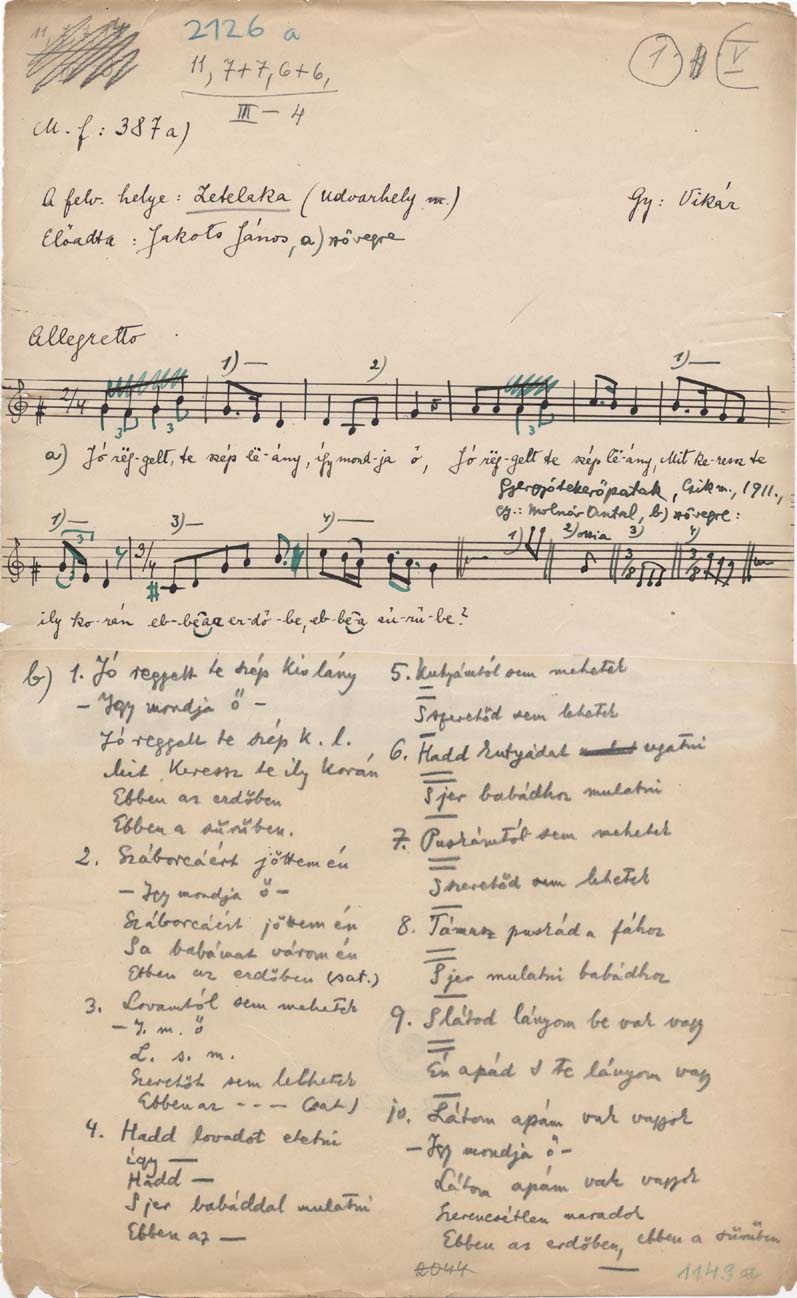 2126 a
11, 7+7, 6+6,
III – 4
1 V
M. f: 387a)
A felv. helye: Zetelaka (Udvarhely m.) Gy: Vikár
Előadta: Jakots János, a) szövegre
Allegretto
1) 2) 1)
2/4
3 3 3
a) Jó rëg-gelt, te szép lë-ány, így mond-ja ő, Jó rëg-gelt te szép lë-ány, Mit ke-ressz te
Gyergyótekerőpatak, Csík m., 1911.,
gy.: Molnár Antal, b) szövegre:
1) 3) 4) 1) 2) ossia 3) 4)
3 3/4 3/8 3/8
ily ko-rán eb-be er-dő-be, eb-be sü-rü-be?
b) 1. Jó reggelt te szép kis lány
– Igy mondja ő –
Jó reggelt te szép k. l.
Mit keressz te ily korán
Ebben az erdőben
Ebben a sűrűben.
2. Száborcáért jöttem én
– Igy mondja ő –
Száborcáért jöttem én
Sa babámat várom én
Ebben az erdőben (sat.)
3. Lovamtól sem mehetek
– I. m. ő
L. s. m.
Szeretőt sem lelhetek
Ebben az - - - (sat)
4. Hadd lovadot etetni
így —
Hadd —
S jer babáddal mulatni
Ebben az —
5. Kutyámtól sem mehetek
S szeretőd sem lehetek
6. Hadd kutyádat ugatni
S jer babádhoz mulatni
7. Puskámtól sem mehetek
S szeretőd sem lehetek
8. Támasz puskád a fához
S jer mulatni babádhoz
9. S látod lányom be vak vagy
Én apád s te lányom vagy
10. Látom apám vak vagyok
– Igy mondja ő –
Látom apám vak vagyok
Szerencsétlen maradok
Ebben az erdőben, ebben a sűrűben
2044
1149 a